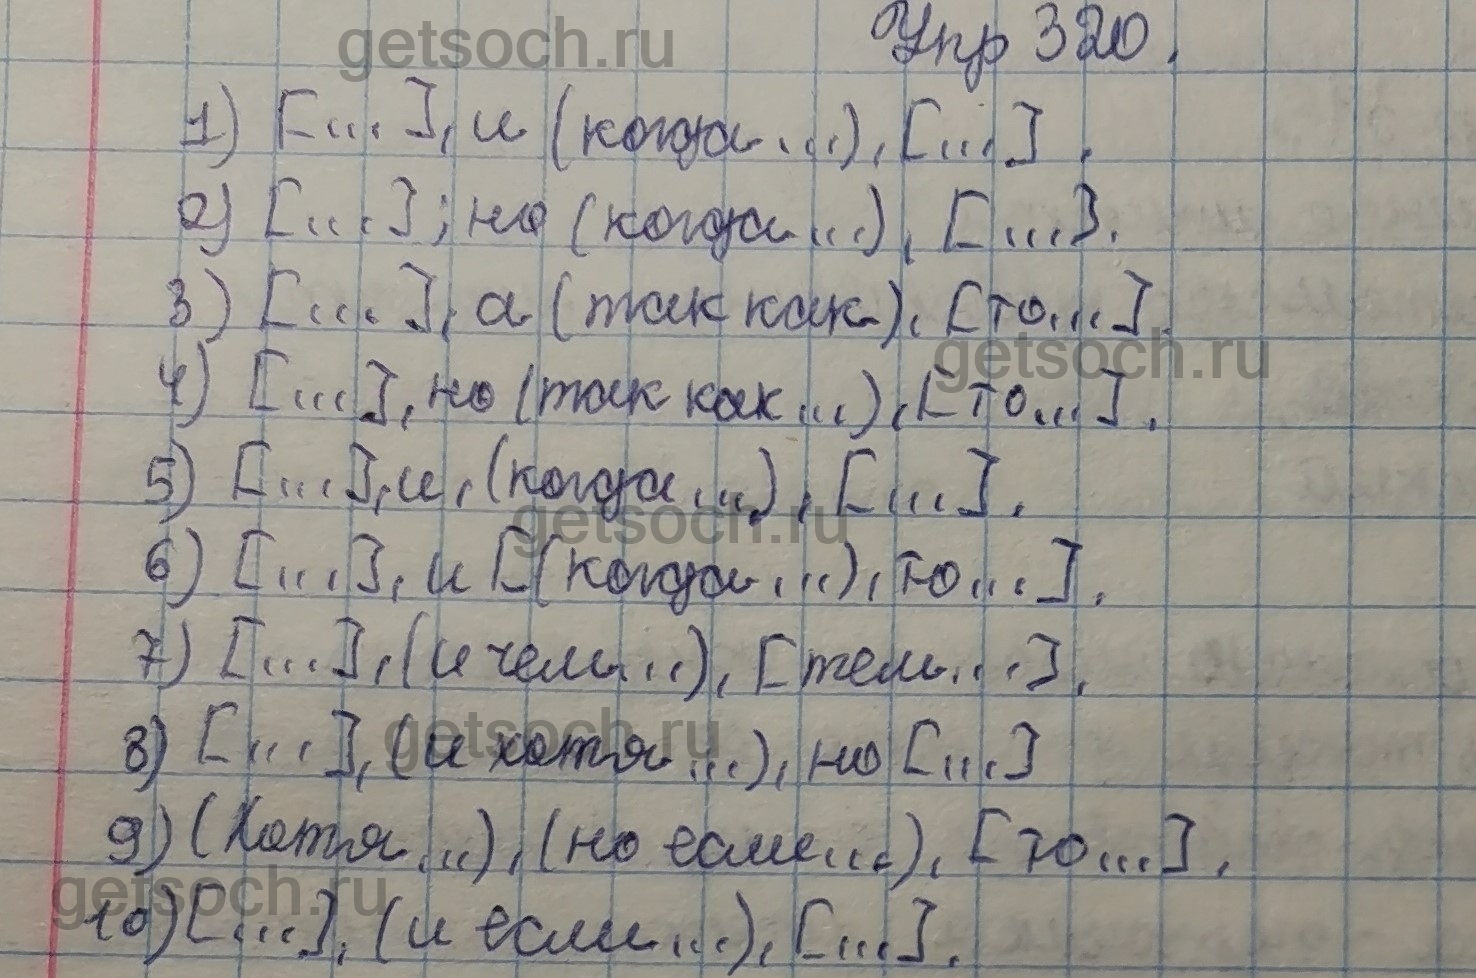 getsoch.ru
Упр 320.
1) [...], и (когда...), [...].
2) [...]; но (когда...), [...].
3) [...], а (так как), [то...].
getsoch.ru
4) [...], но (так как...), [то...].
5) [...], и, (когда...), [...].
getsoch.ru
6) [...], и [(когда...), то...].
7) [...], (и чем...), [тем...].
getsoch.ru
8) [...], (и хотя...), но [...]
9) (Хотя...), (но если...), [то...].
getsoch.ru
10) [...], (и если...), [...].